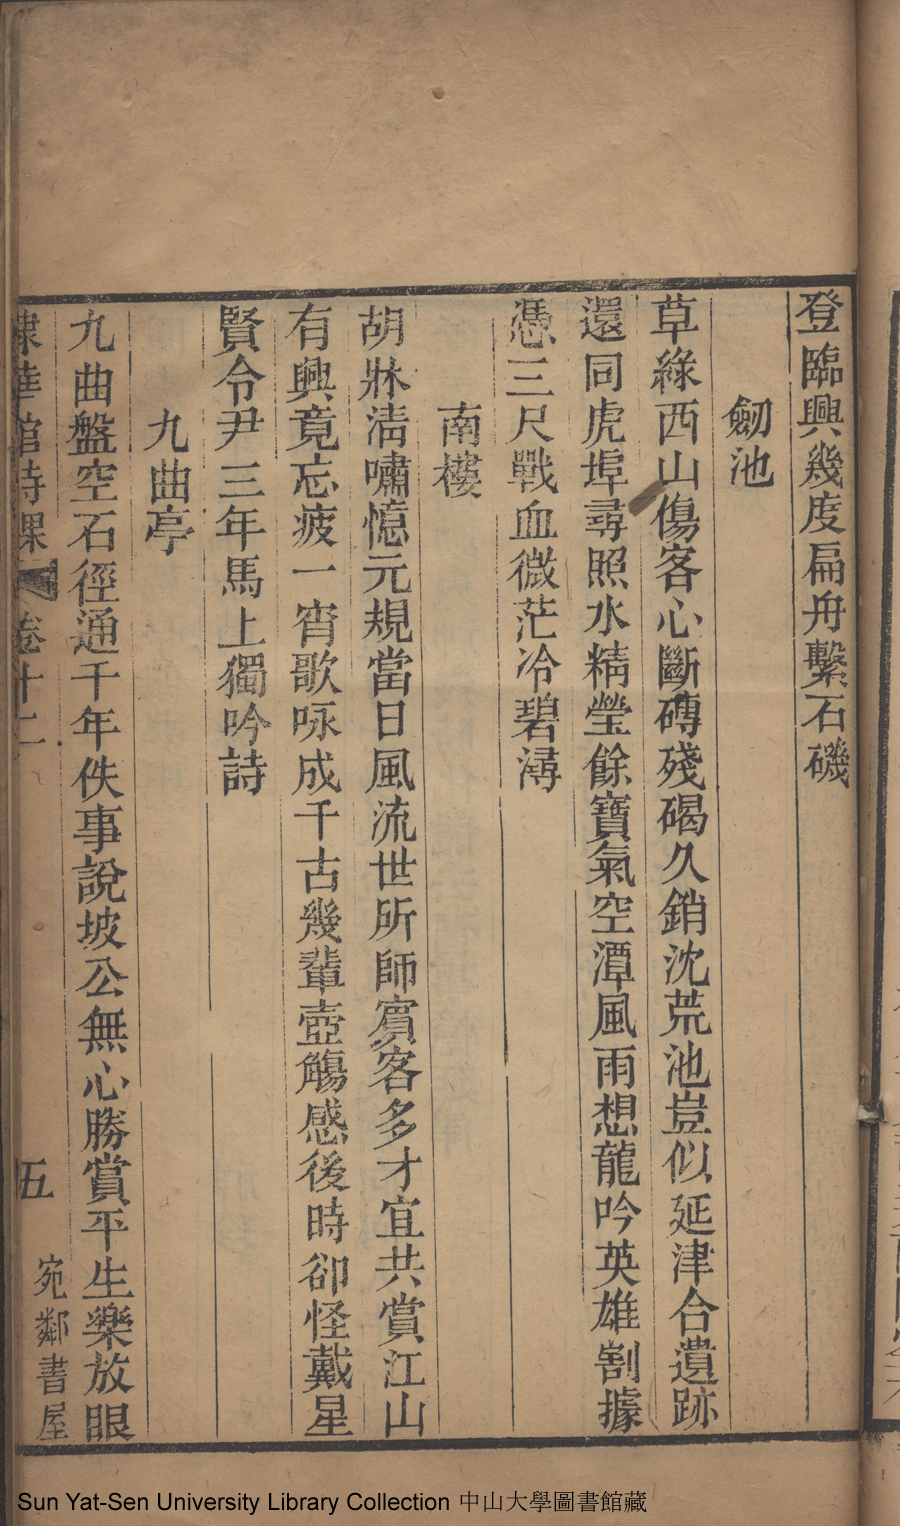 登臨興幾度扁舟繫石磯
劒池
草綠西山傷客心斷磚殘碣久銷沈荒池豈似延津合遺跡
還同虎埠尋照水精瑩餘寶氣空潭風雨想龍吟英雄割據
憑三尺戰血微茫冷碧潯
南樓
胡牀清嘯憶元規當日風流世所師賓客多才宜共賞江山
有興竟忘疲一宵歌咏成千古幾輩壺觴感後時卻怪戴星
賢令尹三年馬上獨吟詩
九曲亭
九曲盤空石徑通千年佚事說坡公無心勝賞平生樂放眼
棣華館詩課 卷十二 五 宛鄰書屋
Sun Yat-Sen University Library Collection 中山大學圖書館藏